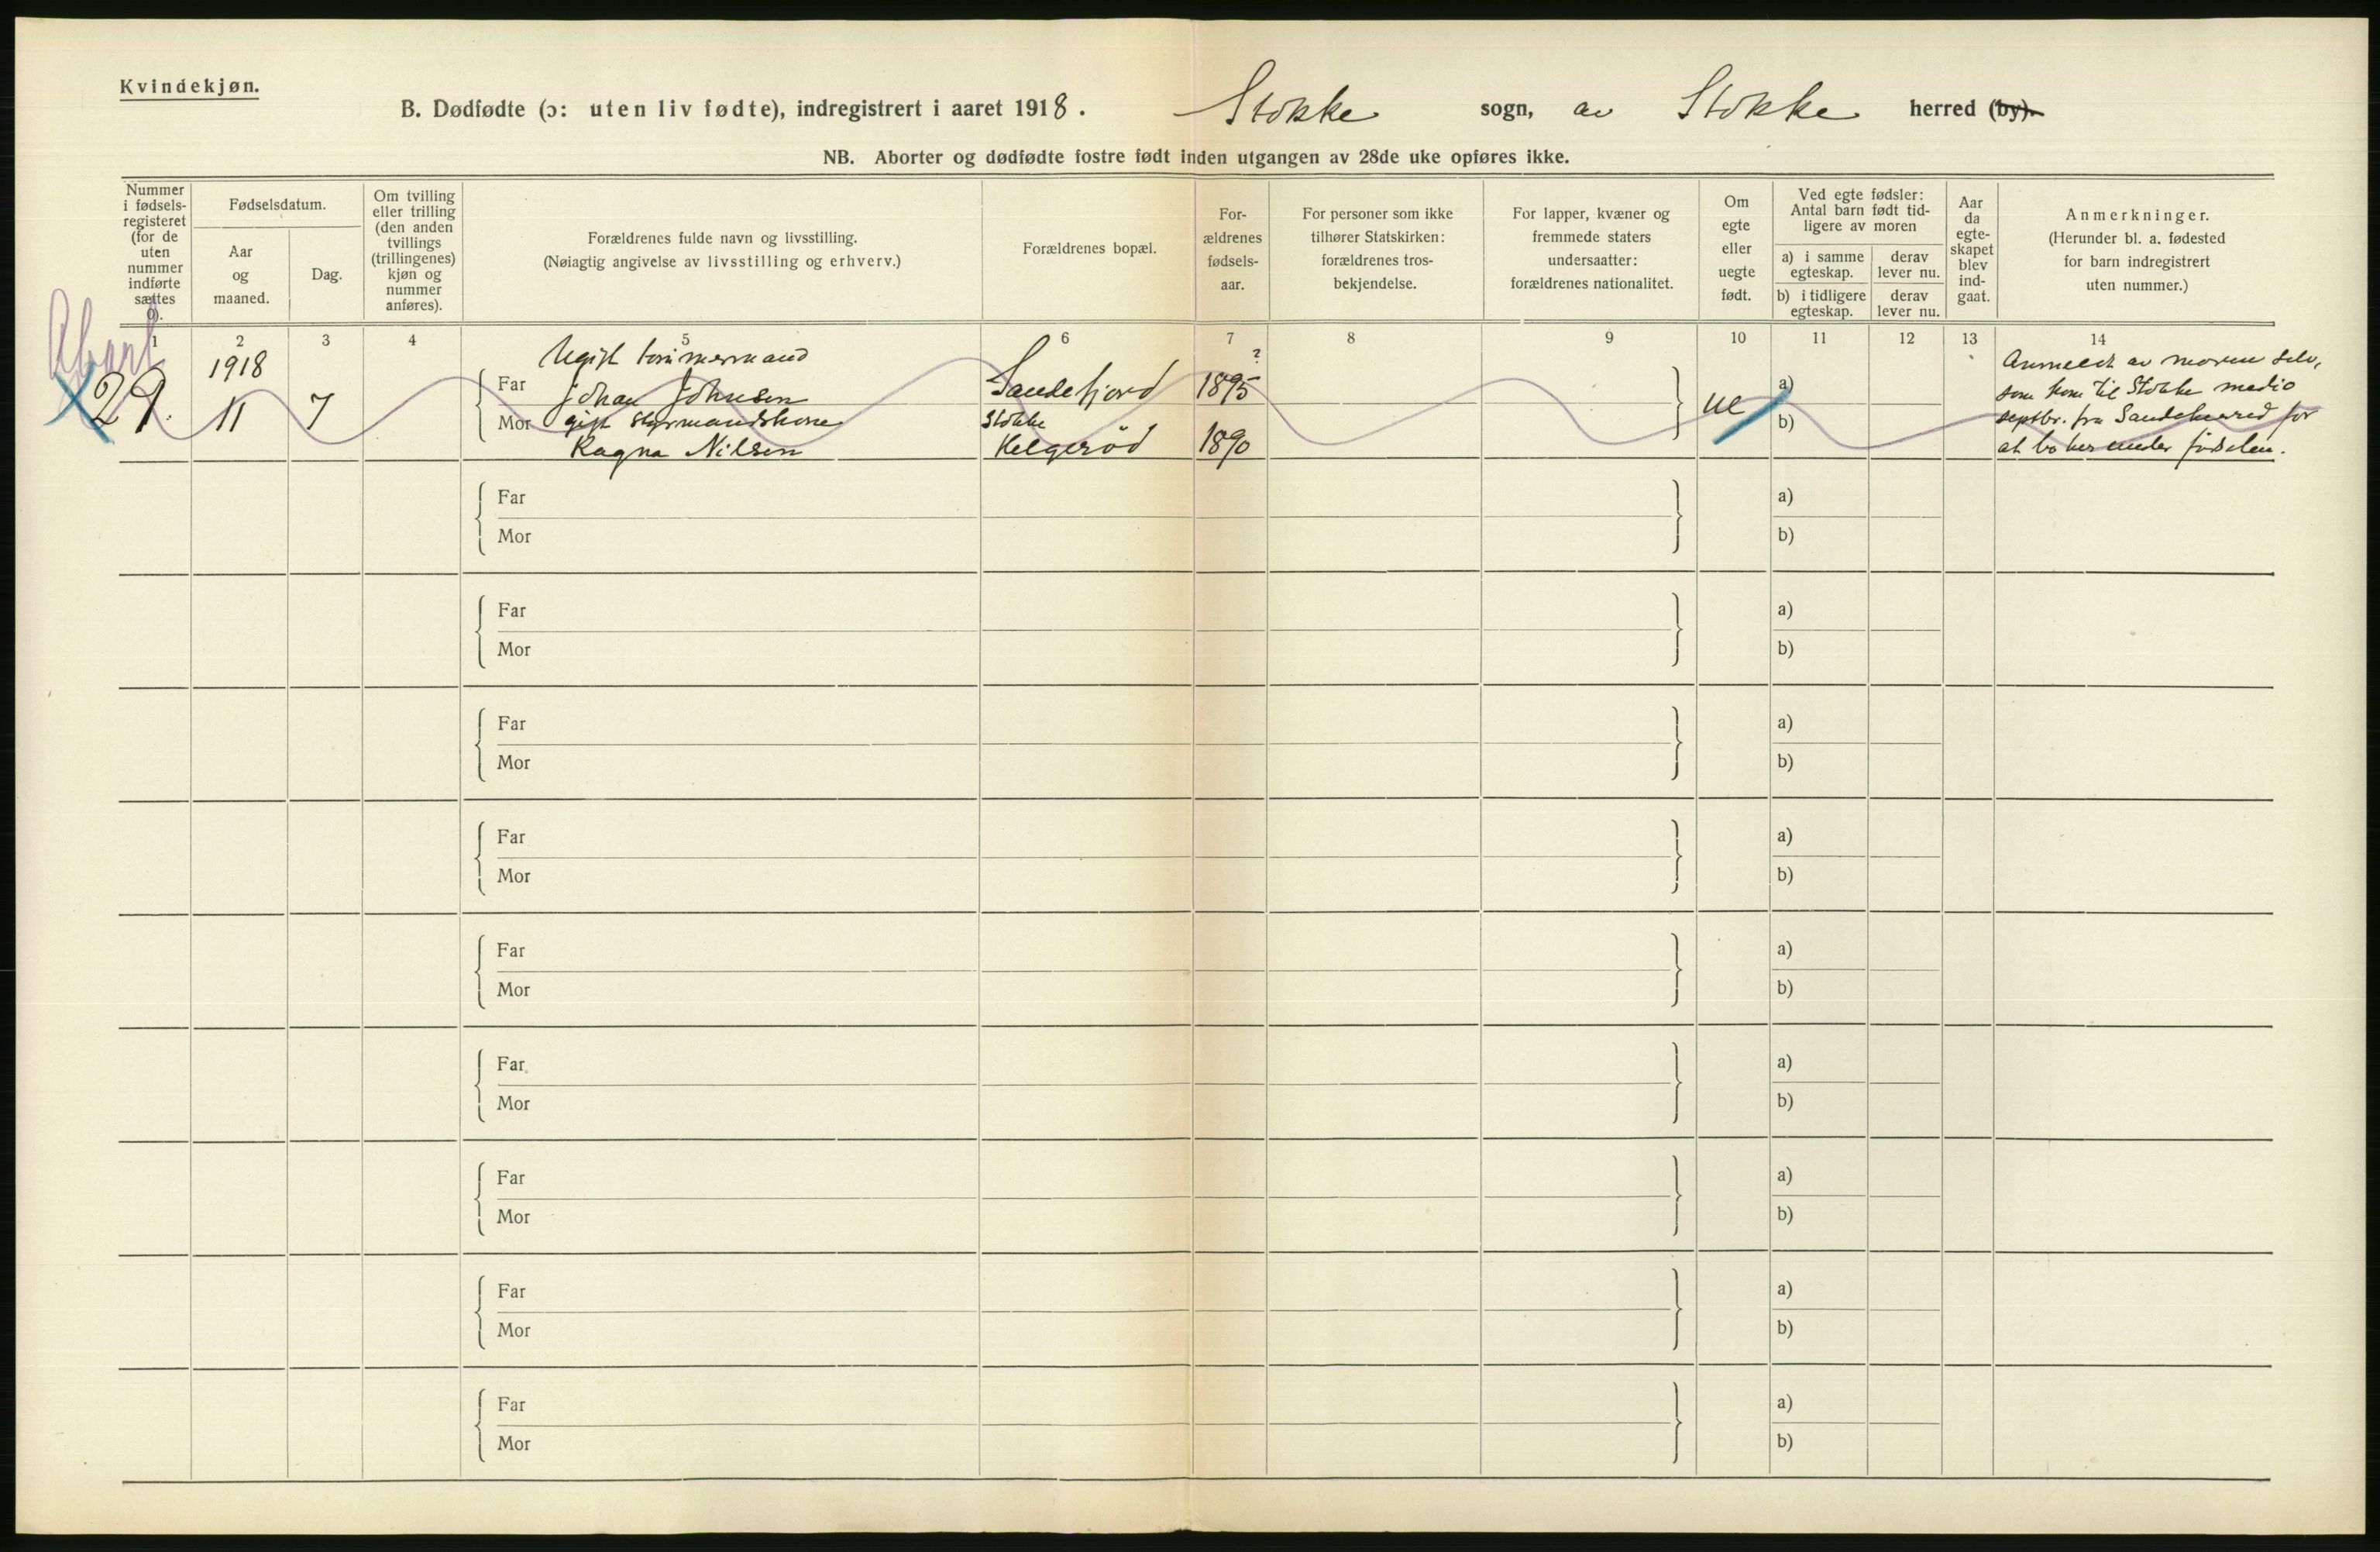 Kvindekjøn.
B. Dødfødte (ɔ: uten liv fødte), indregistrert i aaret 1918. Stokke sogn, av Stokke herred (by).
NB. Aborter og dødfødte fostre født inden utgangen av 28de uke opføres ikke.
Nummer i fødsels-registeret (for de uten nummer indførte sættes 0).
Fødselsdatum.
Aar og maaned.
Dag.
Om tvilling eller trilling (den anden tvillings (trillingenes) kjøn og nummer anføres).
Forældrenes fulde navn og livsstilling.
(Nøiagtig angivelse av livsstilling og erhverv.)
Forældrenes bopæl.
For-ældrenes fødsels-aar.
For personer som ikke tilhører Statskirken: forældrenes tros-bekjendelse.
For lapper, kvæner og fremmede staters undersaatter: forældrenes nationalitet.
Om egte eller uegte født.
Ved egte fødsler: Antal barn født tid-ligere av moren
a) i samme egteskap.
derav lever nu.
b) i tidligere egteskap.
derav lever nu.
Aar da egte-skapet blev ind-gaat.
Anmerkninger.
(Herunder bl. a. fødested for barn indregistrert uten nummer.)
1 2 3 4 5 6 7 8 9 10 11 12 13 14
Abort
29. 1918 11 7
Ugift tømmermand
Far Johan Johnsen Sandefjord 1895 ?
Mor gift styrmandskone Stokke
Ragna Nilsen Helgerød 1890
ue
a)
b)
Anmeldt av moren selv,
som kom til Stokke medio
septbr. fra Sandeherred for
at bo her under fødselen.
Far a)
Mor b)
Far a)
Mor b)
Far a)
Mor b)
Far a)
Mor b)
Far a)
Mor b)
Far a)
Mor b)
Far a)
Mor b)
Far a)
Mor b)
Far a)
Mor b)